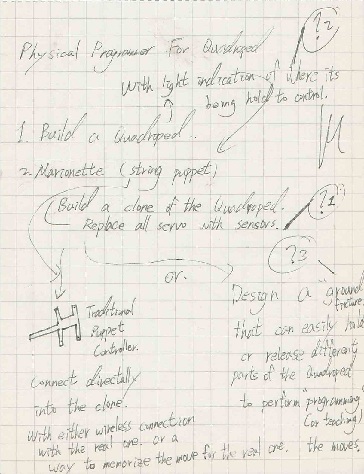 ?2
Physical Programmer For Quadroped
With light indication of where its
being hold to control.
1. Build a Quadroped.
2. Marionette (string puppet)
Build a clone of the Quadroped.
Replace all servo with sensors.
?1
or.
?3
Traditional
Puppet
Controller.
Connect directally
into the clone.
With either wireless connection
with the real one. or a
way to memorize the move for the real one.
Design a ground
fixture
that can easily hold
or release different
parts of the Quadroped
to perform "programming
(or teaching)
the moves